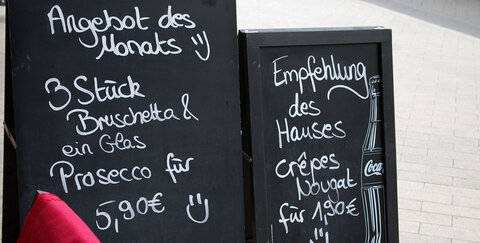 Angebot des
Monats
3 Stück
Bruschetta &
ein Glas
Prosecco für
5,90€
Empfehlung
des
Hauses
Crêpes
Nougat
für 1,90€
Coca-Cola